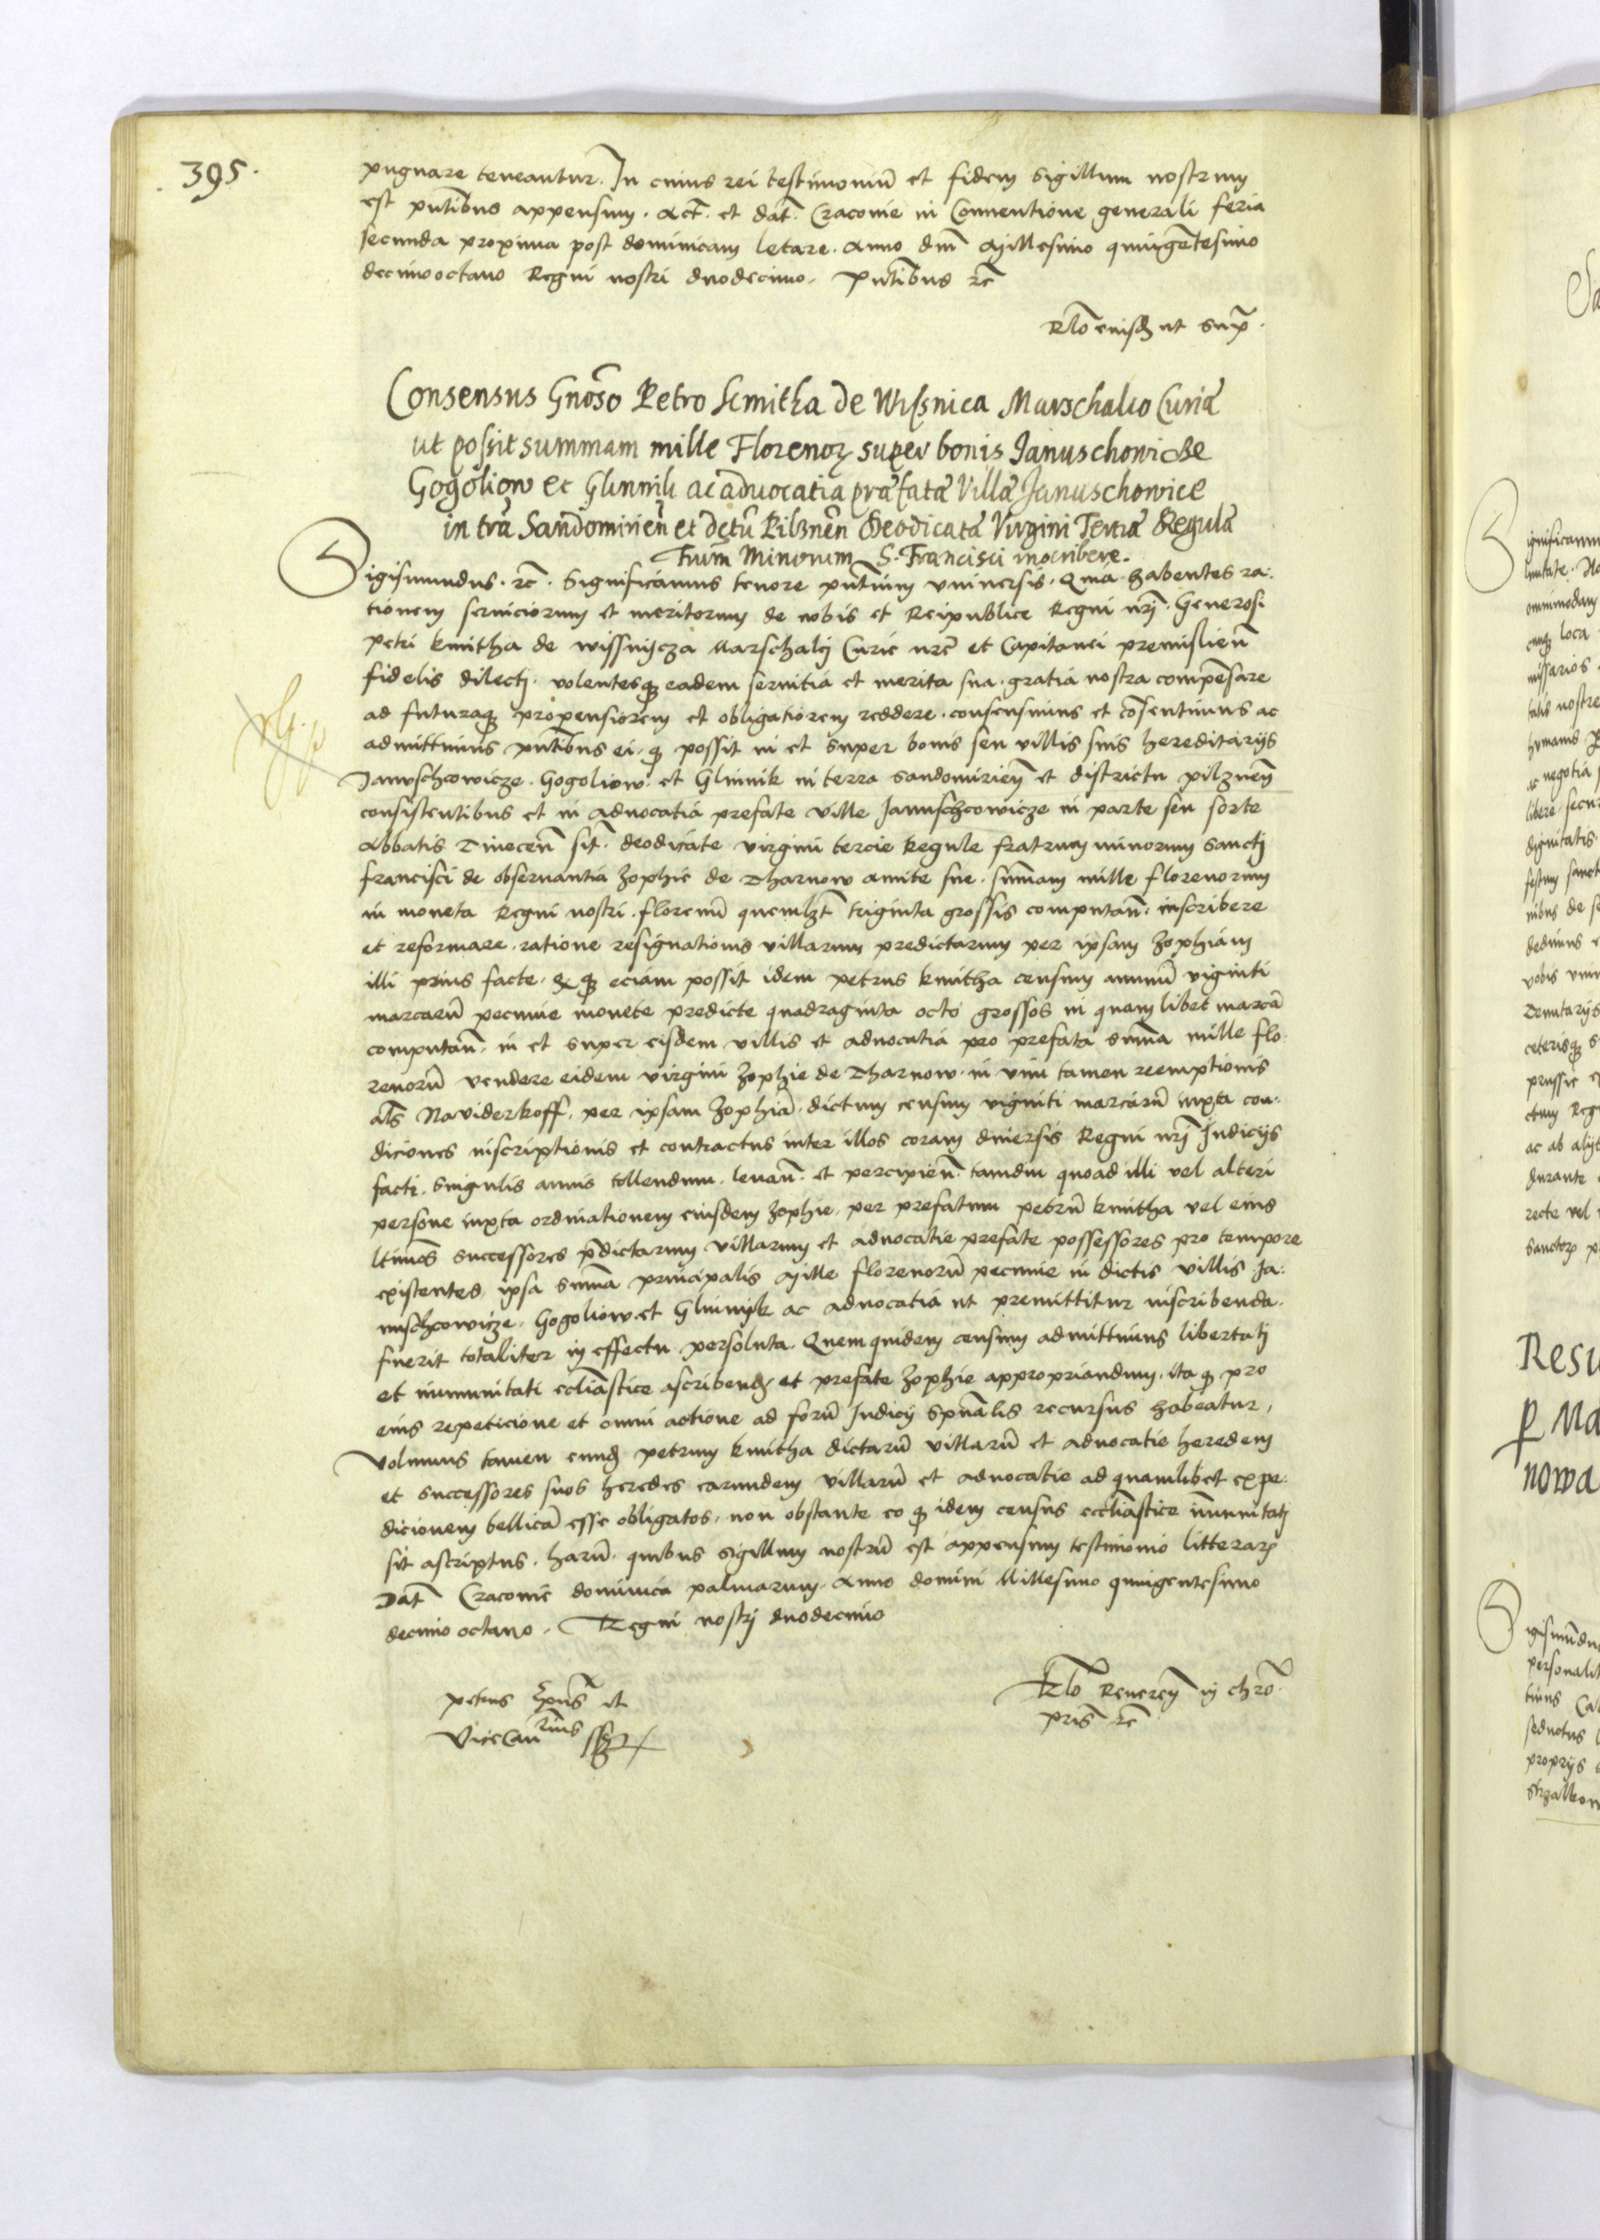 395.
pugnare teneantur. In cuius rei testimoniū et fidem Sigillum nostrum
est pn̄tibus appensum. Act. et dat̄. Cracovie in Conventione generali feria
secunda proxima post dominicam letare. Anno dn̄i Millesimo quingētesimo
decimooctavo Regni nostri duodecimo. Pn̄tibus rc̄
Rlō eiusd ut supͣ.
Consensus Gnōso Petro Kmitha de Wissnica Marschalco Curiæ
ut possit summam mille Florenoꝝ super bonis Januschowicze
Gogoliow et Glinnik ac advocatia præfatæ Villæ Januschowice
in trā Sandomirien̄ et dc̄tū Pilznēn Deodicatæ Virgini Tertiæ Regulæ
Frūm Minorum S. Francisci inscribere.
Sigismundus. rc̄. Significamus tenore pn̄tium universis. Qm̄a habentes ra:
tionem serviciorum et meritorum de nobis et Reipublice Regni nr̄i. Generosi
Petri Kmitha de wissnijcza Marschalcj Curie nr̄e et Capitanei premislien̄
fidelis dilectj. volentesqꝫ eadem servitia et merita sua. gratia nostra compēsare
ad futuraqꝫ propensiorem et obligatiorem reddere. consensimus et cōsentimus ac
admittimus pn̄tibus ei. qꝫ possit in et super bonis seu villis suis hereditarijs
Janwschcowicze. Gogoliow. et Glinnik in terra Sandomirien̄ et districtu pilznen̄
consistentibus et in advocatia prefate ville Januschcowicze in parte seu sorte
Abbatis Tinecen̄ sit̄. deodicate virgini tercie Regule fratrum minorum Sanctj
francisci de observantia Zophie de Tharnow amite sue. sum̄am mille florenorum
in moneta Regni nostri. florenū quemlꝫt triginta grossis computan̄. inscribere
et reformare. ratione resignationis villarum predictarum per ipsam Zophiam
illi prius facte. & qꝫ eciam possit idem petrus kmitha censum annuū viginti
marcarū pecunie monete predicte quadraginta octo grossos in quamlibet marcā
computan̄. in et super eisdem villis et advocatia pro prefata sum̄a mille flo:
renorū vendere eidem virgini Zophie de Tharnow. in vim tamen reemptionis
al̄s Naviderkoff. per ipsam Zophiā. dictum censum viginti marcarū iuxta con:
diciones inscriptionis et contractus inter illos coram diversis Regni nr̄i Iudicijs
facti. Singulis annis tollendum. levan̄. et percipien̄. tamdiu quoad illi vel alteri
persone iuxta ordinationem eiusdem Zophie. per prefatum petrū kmitha vel eius
ltimos successores p̄dictarum villarum et advocatie prefate possessores pro tempore
existentes ipsa sum̄a principalis Mille florenorū pecunie in dictis villis Ja:
nuschcowicze. Gogoliow. et Glinnijk ac advocatia ut premittitur inscribenda.
fuerit totaliter in effectu persoluta. Quem quidem censum admittimus libertatj
et immunitati eccliāstice ascribend̄. et prefate Zophie appropriandum. ita qꝫ pro
eius repeticione et omni actione ad forū Iudicij spūalis recursus habeatur.
Volumus tamen eund̄ petrum kmitha dictarū villarū et advocatie heredem
et successores suos heredes earundem villarū et advocatie ad quamlibet expe:
dicionem bellicā esse obligatos. non obstante eo qꝫ idem census eccliāstice im̄unitatj
sit ascriptus. harū. quibus Sigillum nostrū est appensum testimonio litterarꝫ
Dat̄ Cracovie dominica palmarum. Anno domini Millesimo quingentesimo
decimo octavo. Regni nostrj duodecimo
Petrus Ep̄us et
ViceCan̄rius ss
Rlō Reveren̄ in chrō.
pris̄ rc̄